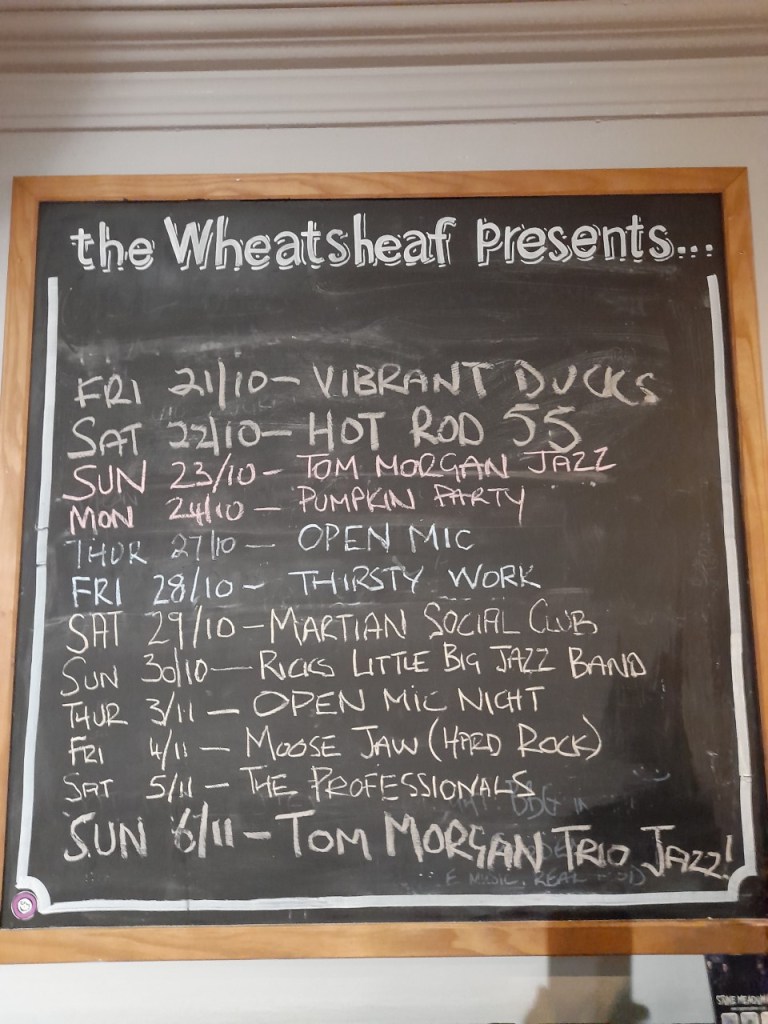 the Wheatsheaf presents...
FRI 21/10 - VIBRANT DUCKS
SAT 22/10 - HOT ROD 55
SUN 23/10 - TOM MORGAN JAZZ
MON 24/10 - PUMPKIN PARTY
THUR 27/10 - OPEN MIC
FRI 28/10 - THIRSTY WORK
SAT 29/10 - MARTIAN SOCIAL CLUB
SUN 30/10 - RICKS LITTLE BIG JAZZ BAND
THUR 3/11 - OPEN MIC NIGHT
FRI 4/11 - MOOSE JAW (HARD ROCK)
SAT 5/11 - THE PROFESSIONALS
SUN 6/11 - TOM MORGAN TRIO JAZZ!
MUSIC, REAL